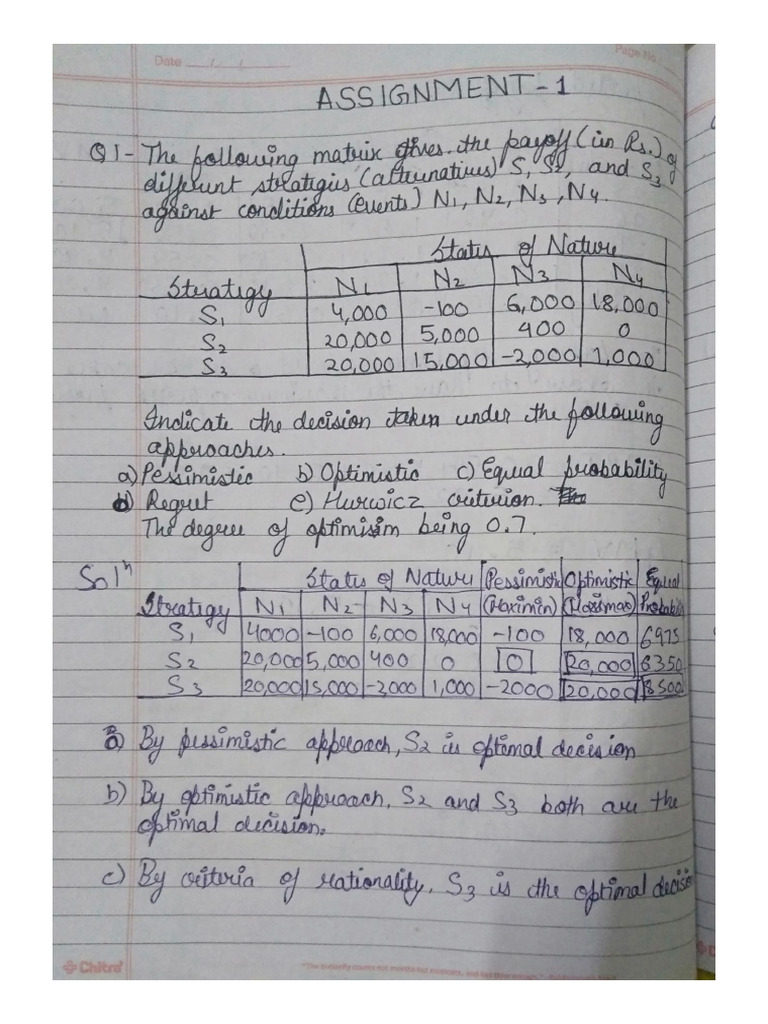 Date __/__/__
Page No.
ASSIGNMENT-1
Q1- The following matrix gives the payoff (in Rs.) of
different strategies (alternatives) S, S2, and S3
against conditions (events) N1, N2, N3, N4.
States of Nature
Strategy N1 N2 N3 N4
S1 4,000 -100 6,000 18,000
S2 20,000 5,000 400 0
S3 20,000 15,000 -2,000 1,000
Indicate the decision taken under the following
approaches.
a) Pessimistic b) Optimistic c) Equal probability
d) Regret e) Hurwicz criterion.
The degree of optimisim being 0.7.
Solⁿ States of Nature Pessimistic Optimistic Equal
Strategy N1 N2 N3 N4 (Maximin) (Maximax) Probabili
S1 4000 -100 6,000 18,000 -100 18,000 6975
S2 20,000 5,000 400 0 0 20,000 6350
S3 20,000 15,000 -2,000 1,000 -2000 20,000 8500
a) By pessimistic approach, S2 is optimal decision
b) By optimistic approach, S2 and S3 both are the
optimal decision.
c) By criteria of rationality, S3 is the optimal decision
Chitra